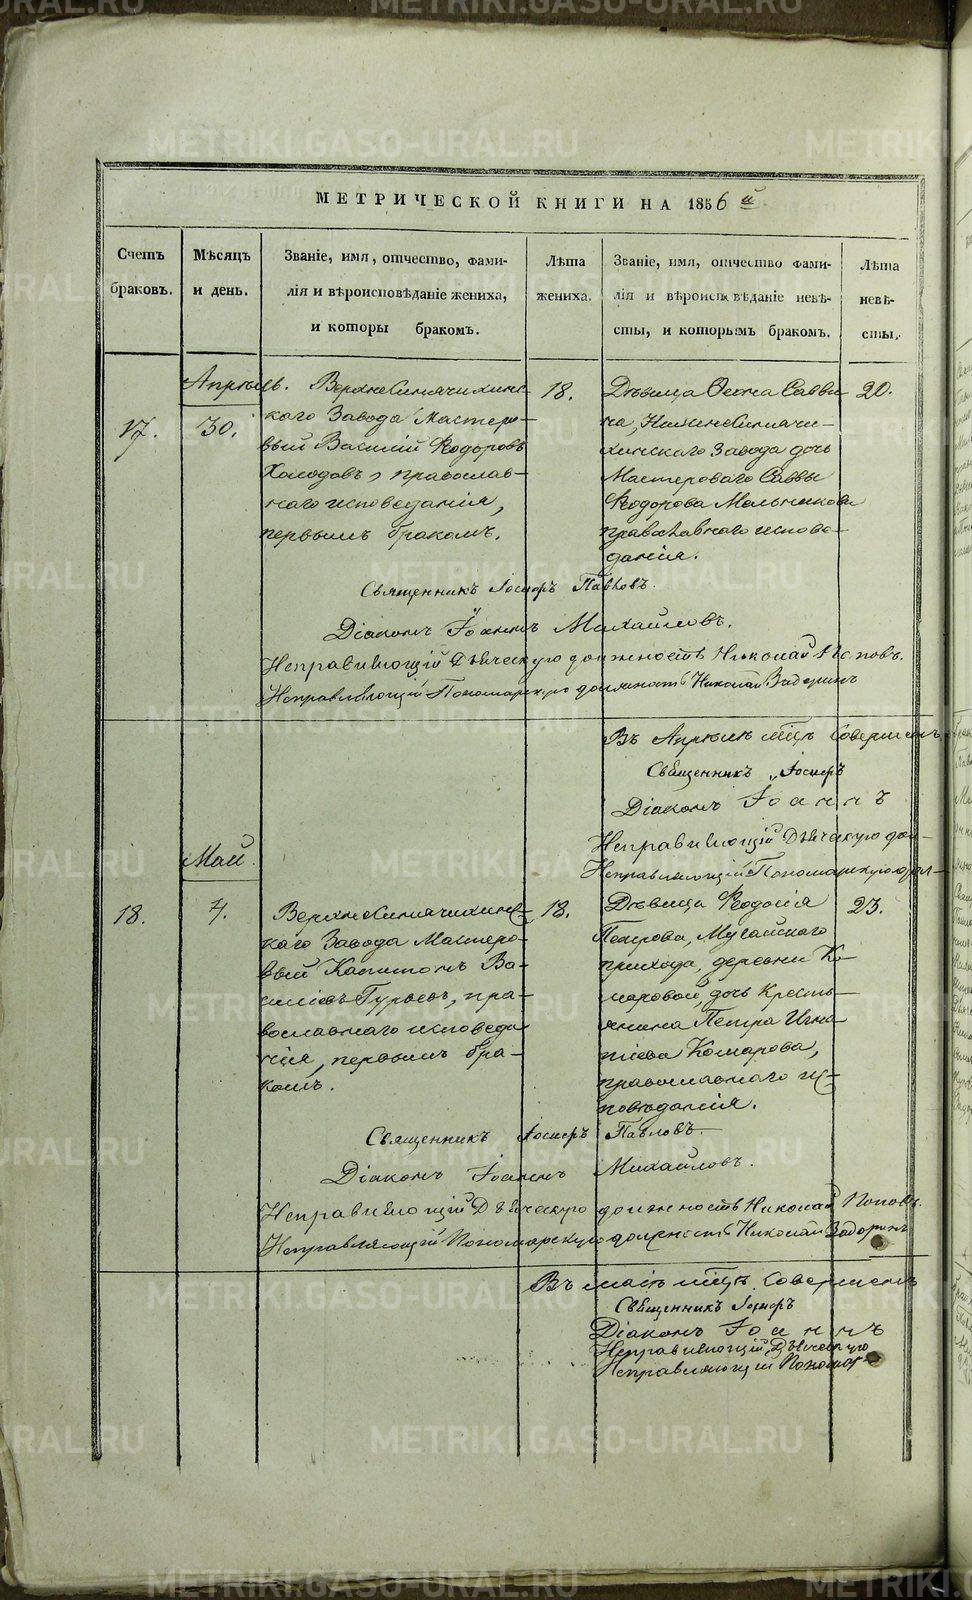 METRIKI.GASO-URAL.RU
МЕТРИЧЕСКОЙ КНИГИ НА 1856 й
Счетъ браковъ.
Мѣсяцъ и день.
Званіе, имя, отчество, фами-
лія и вѣроисповѣданіе жениха,
и которы бракомъ.
Лѣта
жениха.
Званіе, имя, отчество фами-
лія и вѣроиспо вѣданіе невѣ-
сты, и которымъ бракомъ.
Лѣта
невѣ-
сты.
Апрѣль.
17.
30.
ВерхнеСинячихинс-
каго Завода Мастеро-
вый Василій Ѳедоровъ
Холодовъ, православ-
наго исповеданія,
первымъ бракомъ.
18.
Дѣвица Ѳекла Савви-
на, НижнеСинячи-
хинскаго Завода дочь
Мастероваго Саввы
Ѳедорова Мельникова
православнаго испове-
данія.
20.
Священникъ Іосифъ Павловъ.
Діаконъ Іоаннъ Михайловъ.
Исправляющій Дьяческую должность Николай Поповъ.
Исправляющій Пономарскую должность Николай Задоринъ
Въ Апрѣлѣ мцѣ Совершен
Священникъ Іосифъ
Діаконъ Іоаннъ
Исправляющій Дьяческую дол-
Исправляющій Пономарскую дол-
Май.
18.
7.
ВерхнеСинячихинс-
каго Завода Мастеро-
вый Капитонъ Ва-
силіевъ Гурьевъ, пра-
вославнаго исповеда-
нія, первымъ бра-
комъ.
18.
Дѣвица Ѳедосія
Петрова, Мугайскаго
прихода, деревни Ко-
маровой, дочь Кресть-
янина Петра Игна-
тіева Комарова,
православнаго ис-
повѣданія.
23.
Священникъ Іосифъ Павловъ
Діаконъ Іоаннъ Михайловъ.
Исправляющій Дьяческую должность Николай Поповъ.
Исправляющій Пономарскую должность Николай Задоринъ
Въ маіѣ мцѣ Совершен
Священникъ Іосифъ
Діаконъ Іоаннъ
Исправляющій Дьяческую
Исправляющій Пономар